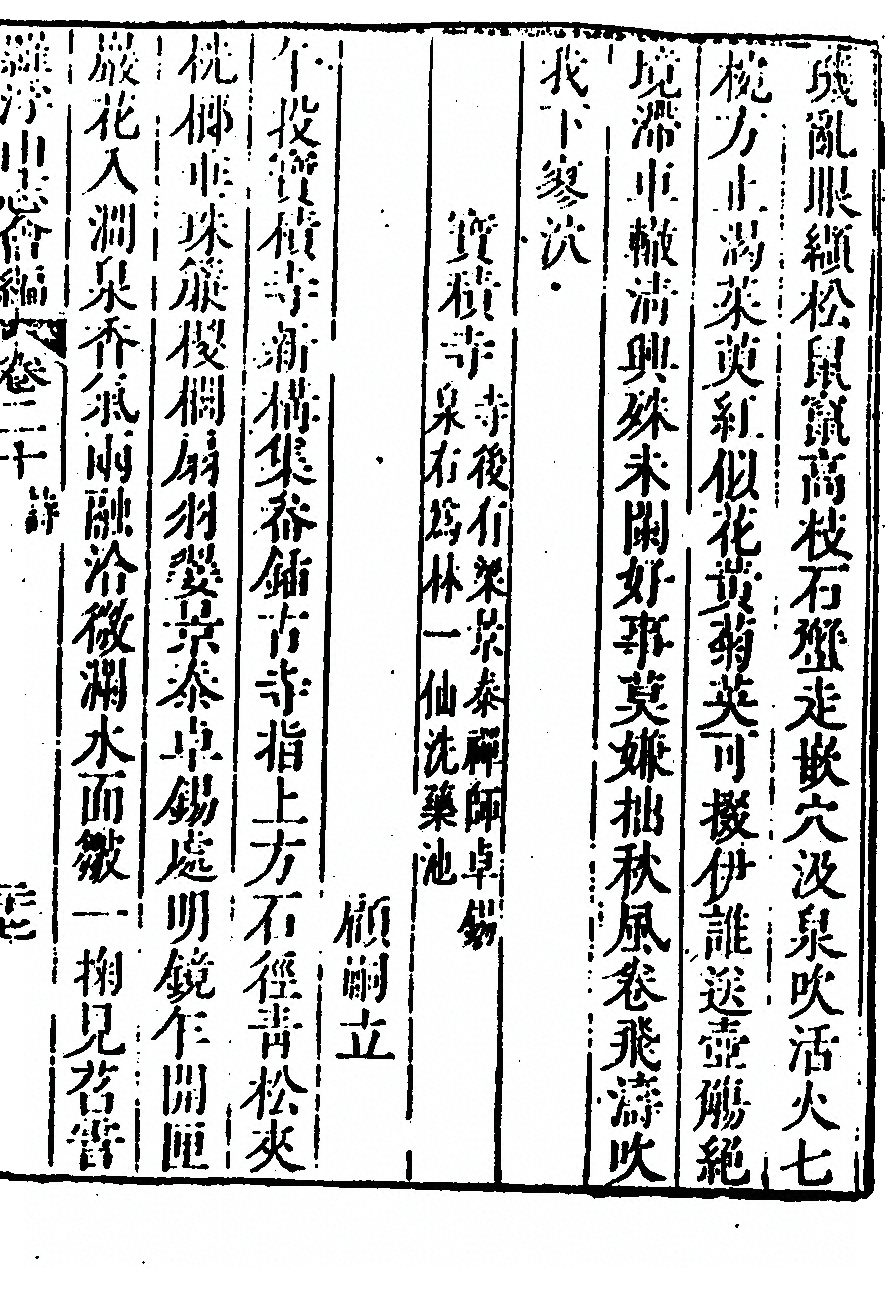 璣亂眼纈松鼠竄高枝石蛩走嵌穴汲泉吹活火七
椀方止渴茱萸紅似花黃菊英可掇伊誰送壺觴絕
境滯車轍清興殊未闌好事莫嫌拙秋風卷飛濤吹
我下寥泬
寶積寺
寺後有梁景泰禪師卓錫
泉右為林一仙洗藥池
顧嗣立
午投寶積寺新構集畚鍤古寺指上方石徑青松夾
桄榔車珠簇椶櫚扇羽翣景泰卓錫處明鏡乍開匣
巖花入澗泉香氣兩融洽微瀾水面皺一掬見苕霅
羅浮山志會編 卷二十 詩